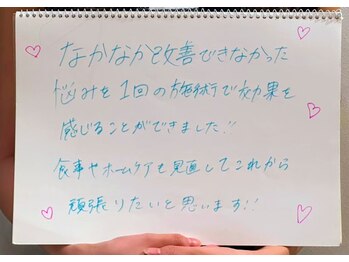 なかなか改善できなかった
悩みを1回の施術で効果を
感じることができました!!
食事やホームケアも見直してこれから
頑張りたいと思います!!